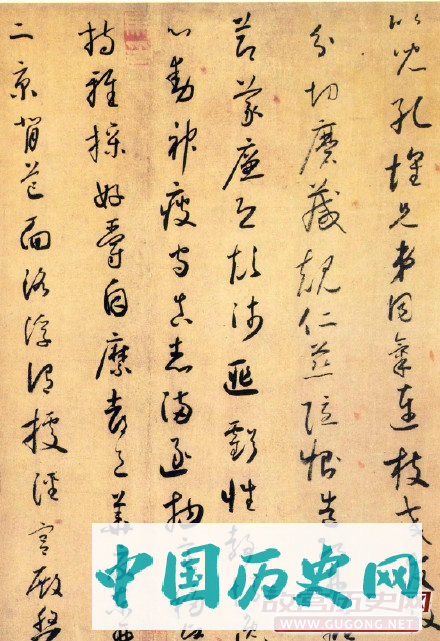 比兒孔懷兄弟同氣連枝交友投
分切磨箴規仁慈隱惻造
節義廉退顛沛匪虧性靜情
心動神疲守真志滿逐物意移
持雅操好爵自縻都邑華
二京背芒面洛浮渭據涇宮殿盤
中国历史网
故宫历史网
WWW.GUGONG.NET